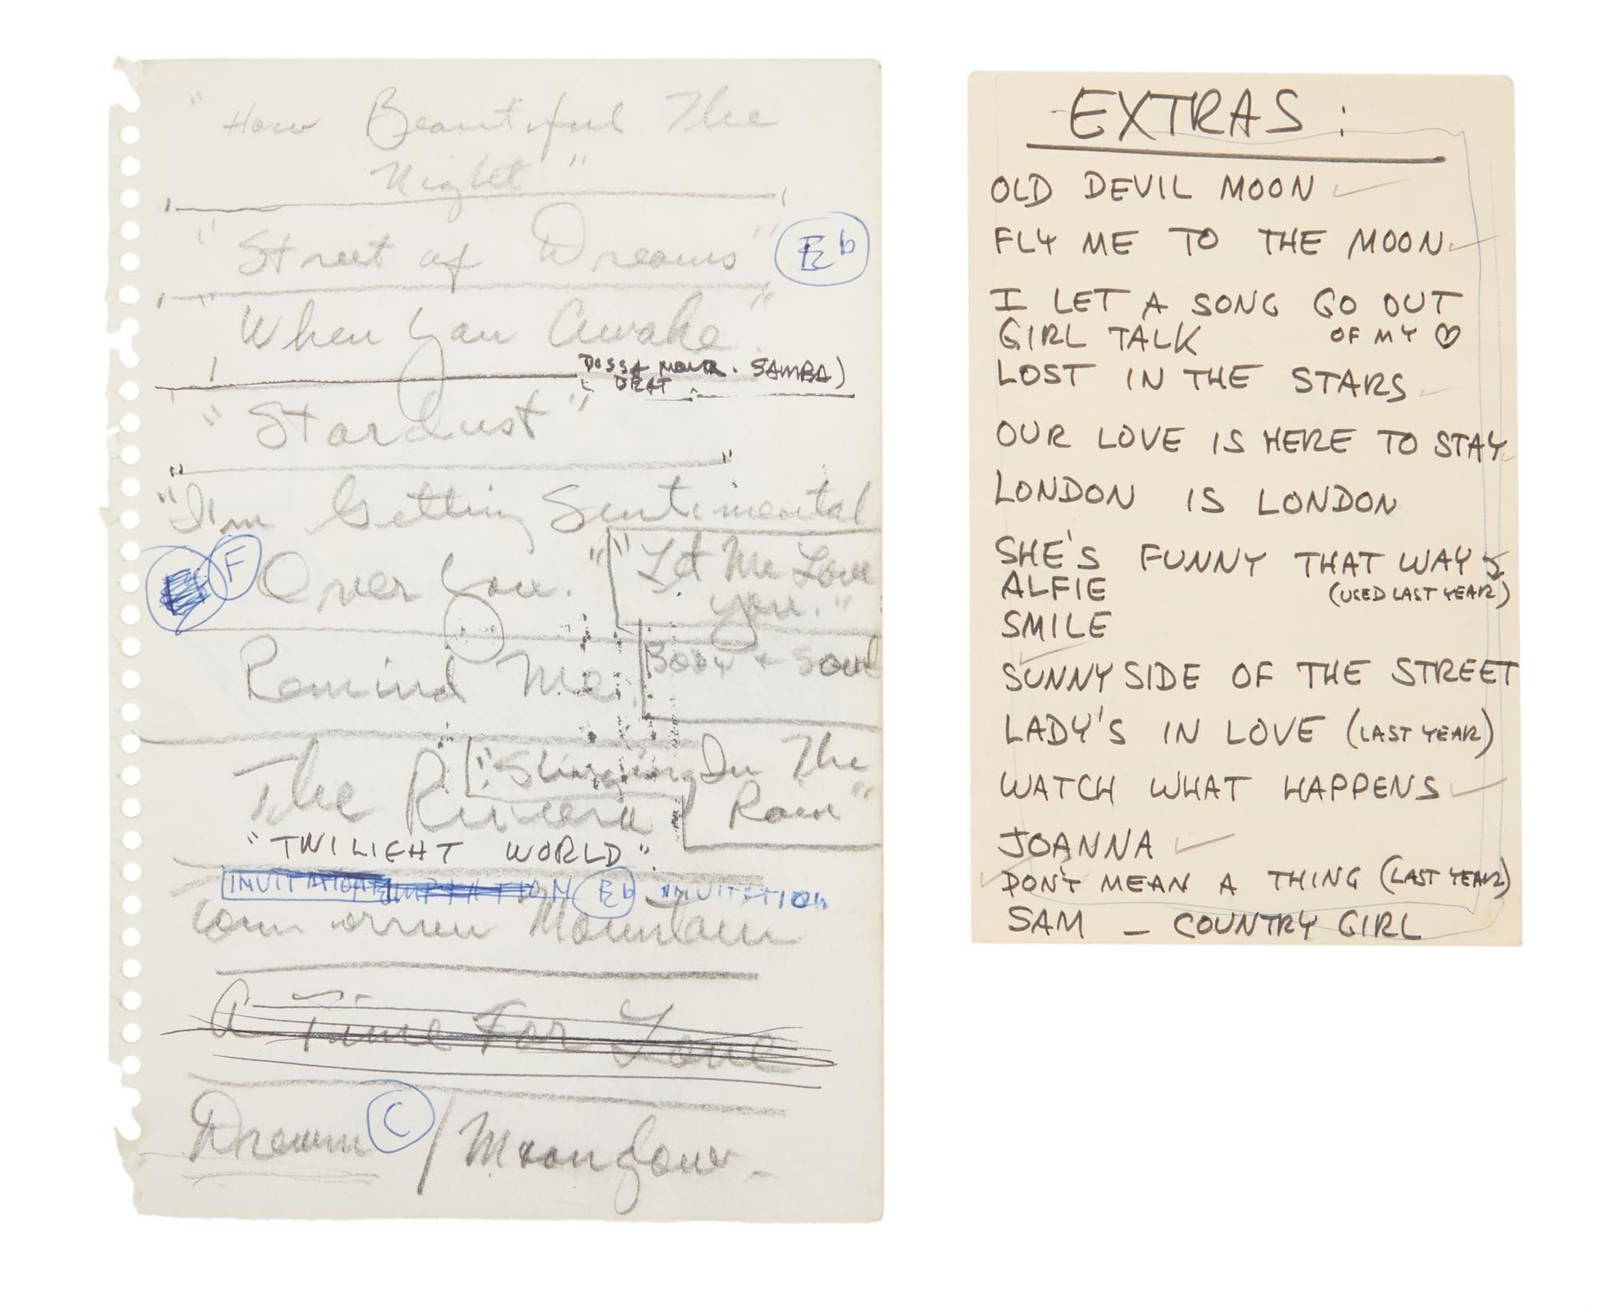 "How Beautiful The
Night"
"Street of Dreams" Eb
"When You Awake"
BOSSA NOVA. SAMBA)
( BEAT
"Stardust"
"I'm Getting Sentimental
F Over You." "Let Me Love
you."
Remind Me BODY + Soul
The Riviera "Singing In The
Rain"
"TWILIGHT WORLD".
INVITATION Eb INVITATION
Mountain
A Time For Love
Dream C / Moonglow -
EXTRAS:
OLD DEVIL MOON
FLY ME TO THE MOON
I LET A SONG GO OUT
GIRL TALK OF MY ♡
LOST IN THE STARS
OUR LOVE IS HERE TO STAY
LONDON IS LONDON
SHE'S FUNNY THAT WAY
ALFIE (USED LAST YEAR)
SMILE
SUNNYSIDE OF THE STREET
LADY'S IN LOVE (LAST YEAR)
WATCH WHAT HAPPENS
JOANNA
DON'T MEAN A THING (LAST YEAR)
SAM - COUNTRY GIRL